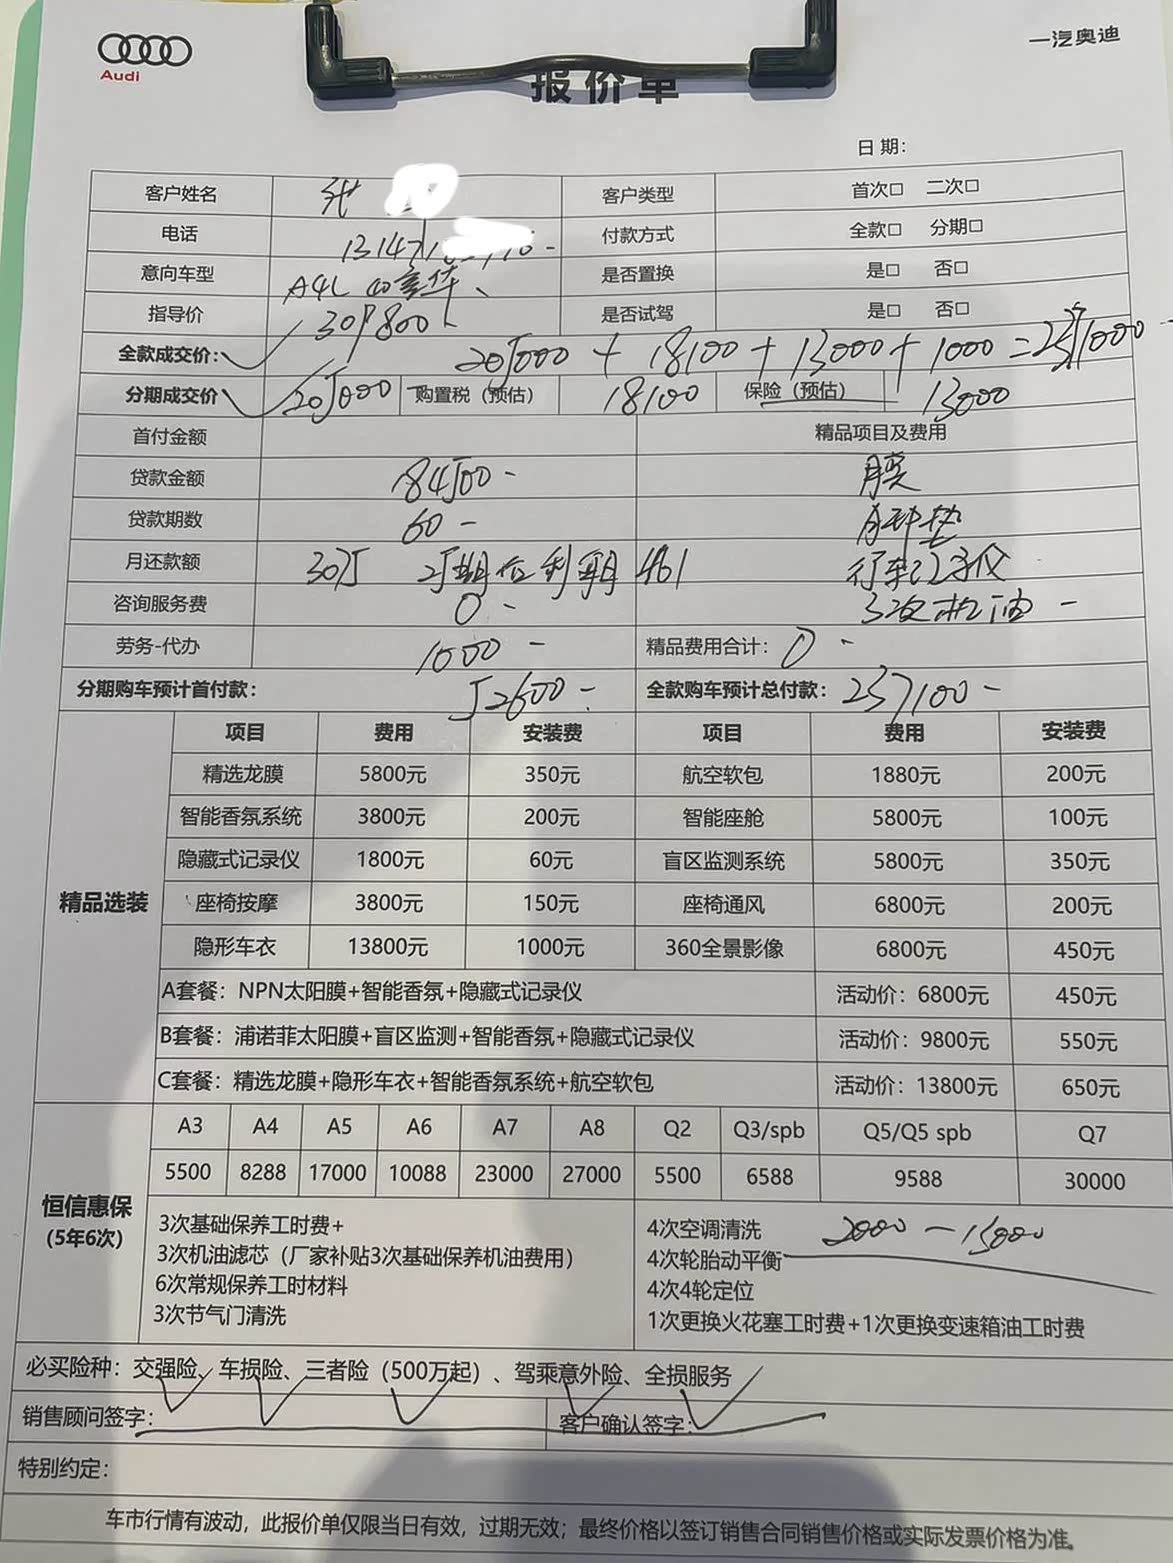 Audi
一汽奥迪
报价单
日期：
客户姓名 客户类型 首次□ 二次□
电话 付款方式 全款□ 分期□
意向车型 A4L 是否置换 是□ 否□
指导价 309800 是否试驾 是□ 否□
全款成交价： 205000 + 18100 + 13000 + 1000 = 237100
分期成交价 205000 购置税（预估） 18100 保险（预估） 13000
首付金额 精品项目及费用
贷款金额 184500 - 膜
贷款期数 60 - 脚垫
月还款额 3075 行车记录仪
咨询服务费 0 - 3次机油 -
劳务-代办 1000 - 精品费用合计： 0 -
分期购车预计首付款： 52600 - 全款购车预计总付款： 237100 -
项目 费用 安装费 项目 费用 安装费
精品选装
精选龙膜 5800元 350元 航空软包 1880元 200元
智能香氛系统 3800元 200元 智能座舱 5800元 100元
隐藏式记录仪 1800元 60元 盲区监测系统 5800元 350元
座椅按摩 3800元 150元 座椅通风 6800元 200元
隐形车衣 13800元 1000元 360全景影像 6800元 450元
A套餐：NPN太阳膜+智能香氛+隐藏式记录仪 活动价：6800元 450元
B套餐：浦诺菲太阳膜+盲区监测+智能香氛+隐藏式记录仪 活动价：9800元 550元
C套餐：精选龙膜+隐形车衣+智能香氛系统+航空软包 活动价：13800元 650元
恒信惠保
（5年6次）
A3 A4 A5 A6 A7 A8 Q2 Q3/spb Q5/Q5 spb Q7
5500 8288 17000 10088 23000 27000 5500 6588 9588 30000
3次基础保养工时费+
3次机油滤芯（厂家补贴3次基础保养机油费用）
6次常规保养工时材料
3次节气门清洗
4次空调清洗 2000 — 15000
4次轮胎动平衡
4次4轮定位
1次更换火花塞工时费+1次更换变速箱油工时费
必买险种：交强险、车损险、三者险（500万起）、驾乘意外险、全损服务
销售顾问签字： 客户确认签字：
特别约定：
车市行情有波动，此报价单仅限当日有效，过期无效；最终价格以签订销售合同销售价格或实际发票价格为准。